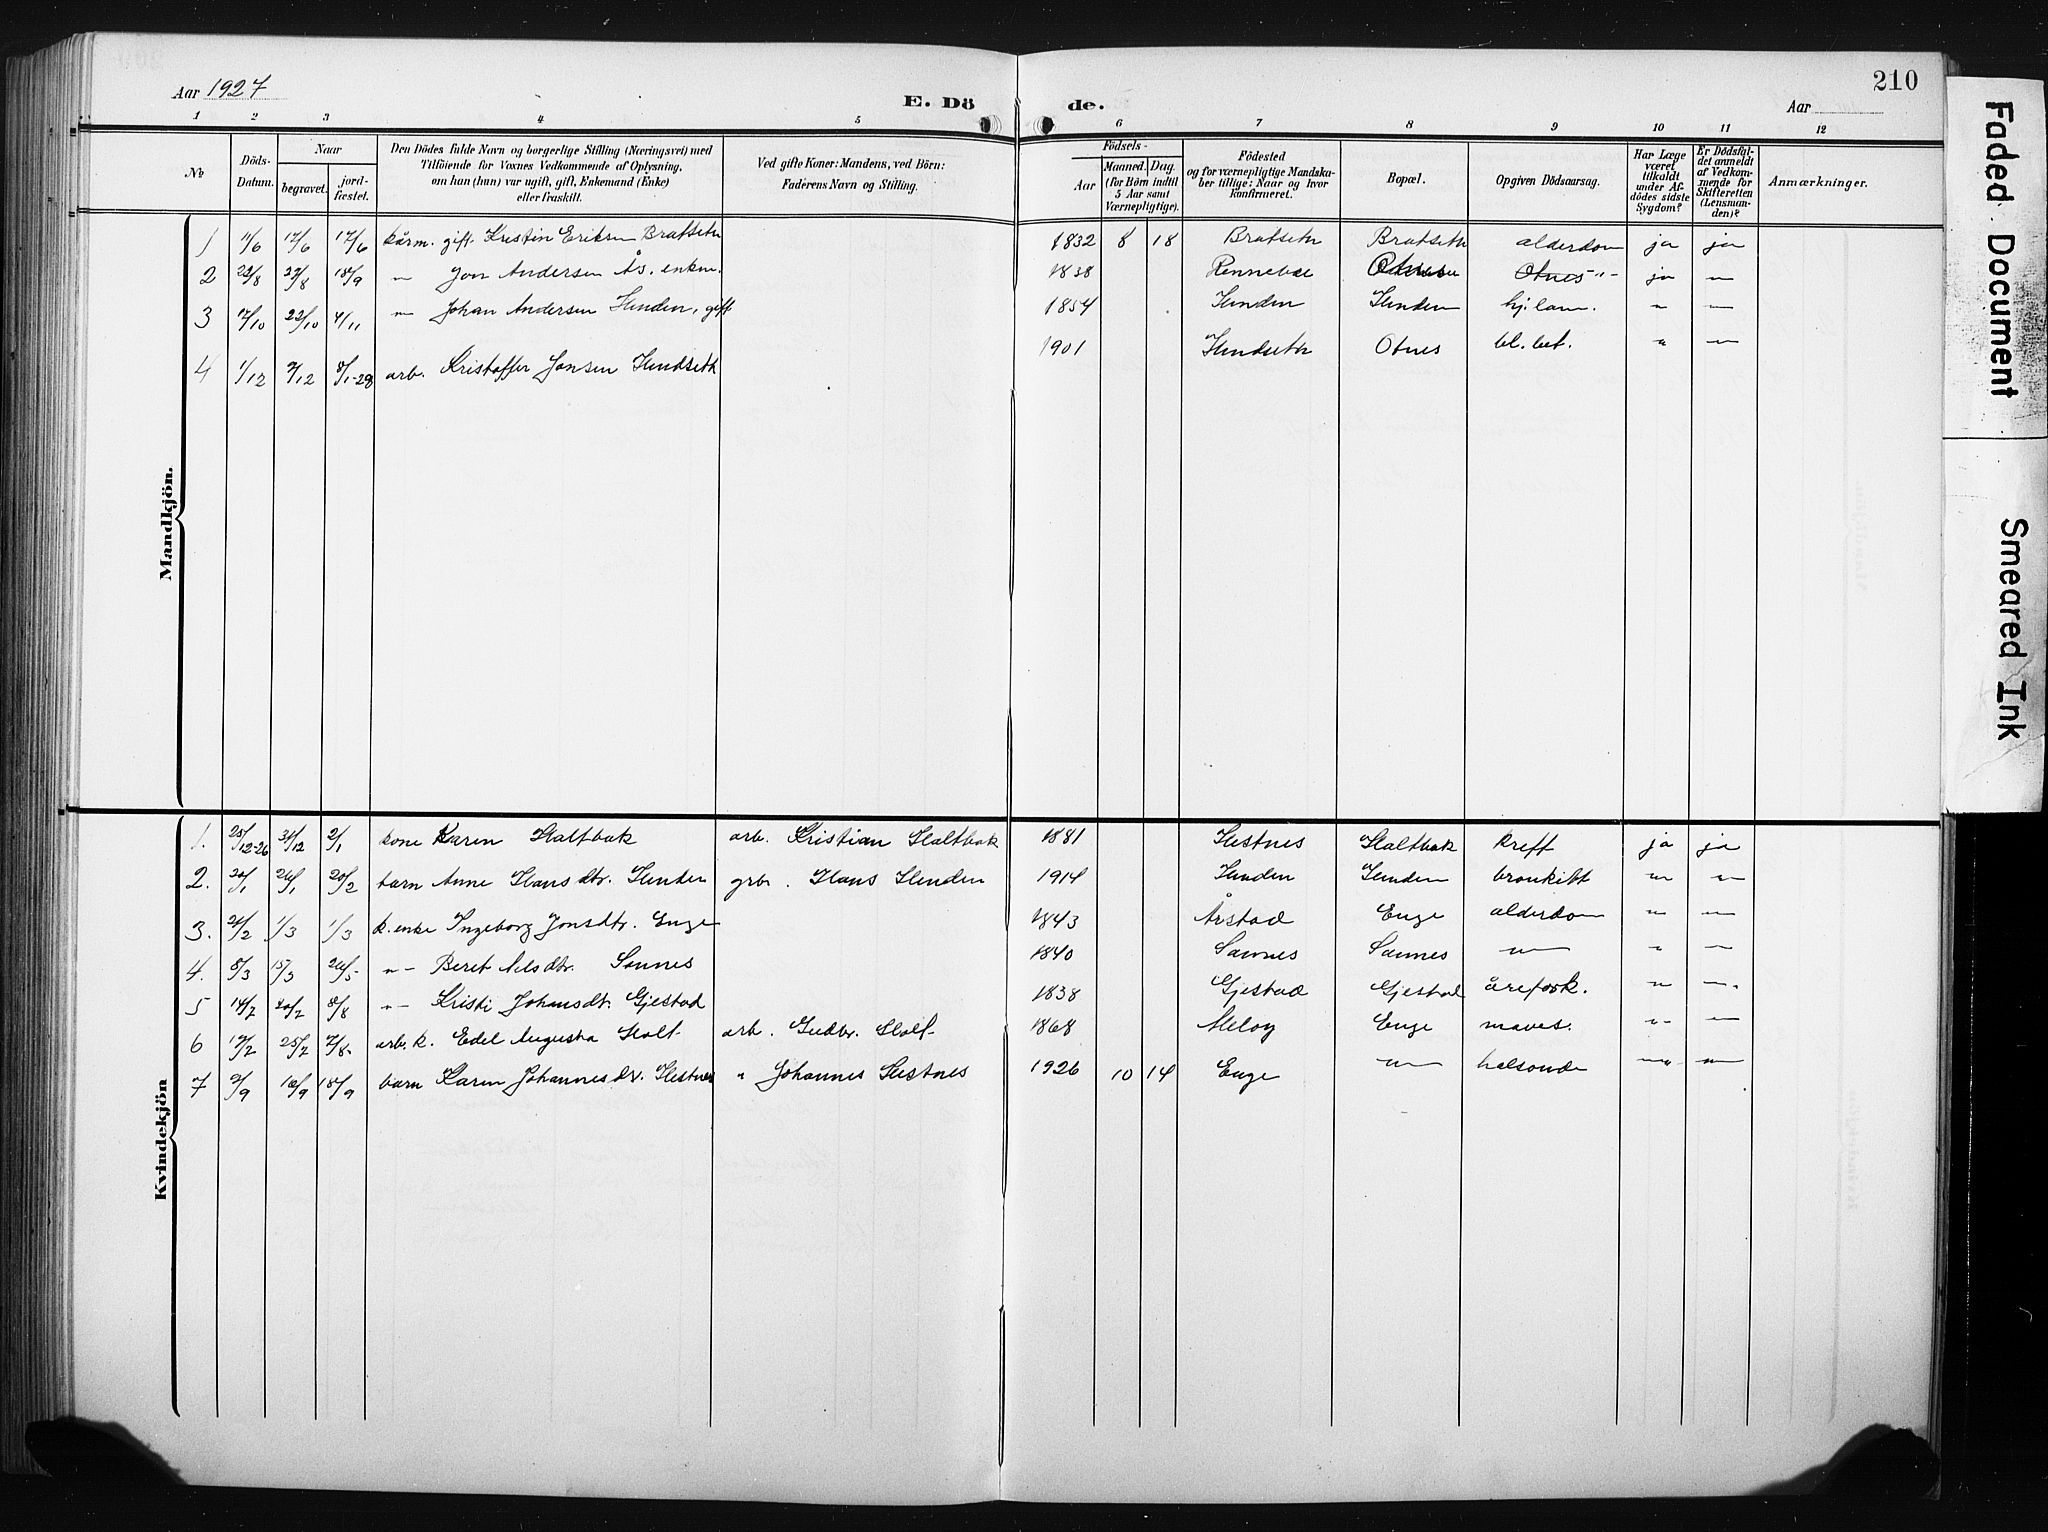 210
Aar 1927 E. Dö de. Aar
1 2 3 4 5 6 7 8 9 10 11 12
№ Döds-Datum. Naar begravet. jord-fæstet. Den Dödes fulde Navn og borgerlige Stilling (Næringsvei) med Tilföiende for Voxnes Vedkommende af Oplysning, om han (hun) var ugift, gift, Enkemand (Enke) eller fraskilt. Ved gifte Koner: Mandens, ved Börn: Faderens Navn og Stilling. Födsels- Aar Maaned. Dag. (for Börn indtil 5 Aar samt Værnepligtige). Födested og for værnepligtige Mandskaber tillige: Naar og hvor konfirmeret. Bopæl. Opgiven Dödsaarsag. Har Læge været tilkaldt under Afdödes sidste Sygdom? Er Dödsfaldet anmeldt af Vedkommende for Skifteretten (Lensmanden)? Anmærkninger.
Mandkjön.
1 11/6 17/6 17/6 kårm. gift. Kristin Eriksen Bratseth 1832 8 18 Bratseth Bratseth alderdom ja ja
2 22/8 29/8 18/9 -"- Jon Andersen Ås. enkm. 1838 Rennebu Otnes -"- ja -"-
3 17/10 22/10 4/11 -"- Johan Andersen Hunden, gift 1854 Hunden Hunden hj.lam. " -"-
4 1/12 9/12 8/1-28 arb. Kristoffer Jonsen Hundseth 1901 Hundseth Otnes bl.bet. " -"-
Kvindekjön
1. 25/12-26 31/12 2/1 kone Karen Holtbak arb. Kristian Holtbak 1881 Hestnes Holtbak kreft ja ja
2. 20/1 26/1 20/2 barn Anne Hansdtr. Hunden grbr. Hans Hunden 1914 Hunden Hunden bronkitt " "
3. 21/2 1/3 1/3 k. enke Ingeborg Jonsdtr. Enge 1843 Årstad Enge alderdom " -"-
4. 8/3 15/3 26/5 -"- Beret Nilsdtr. Sannes 1840 Sannes Sannes -"- " -"-
5 14/7 20/7 8/8 -"- Kristi Johansdtr. Gjestad 1838 Gjestad Gjestad årefork. " -"-
6 19/7 25/7 7/8 arb. k. Edel Augusta Holt arb. Gudbr. Holt 1868 Meløy Enge maves. " -"-
7 9/9 16/9 18/9 barn Karen Johannesdtr. Hestnes " Johannes Hestnes 1926 10 14 Enge -"- halsonde -"- -"-
Faded Document
Smeared Ink